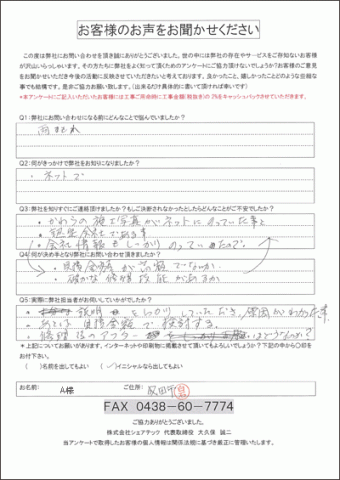 お客様のお声をお聞かせください
この度は弊社にお問い合わせを頂き誠にありがとうございました。世の中には弊社の存在やサービスをご存知ないお客様
が沢山いらっしゃいます。その方たちに弊社をよく知って頂くためのアンケートにご協力頂けないでしょうか?お客様のご意見
をお聞かせいただき今後の活動に反映させていただきたいと考えております。良かったこと、嬉しかったことどのような些細な
事でも結構です。是非ご協力お願い致します。(出来るだけ具体的に書いて頂ければ幸いです)
*本アンケートにご記入いただいたお客様には工事ご用命時に工事金額(税抜き)の2%をキャッシュバックさせていただきます。
Q1:弊社にお問い合わせになる前にどんなことで悩んでいましたか?
雨もれ
Q2:何がきっかけで弊社をお知りになりましたか?
・ネットで
Q3:弊社を知りすぐにご連絡頂けましたか?もしご決断されなかったとしたらどんなことがご不安でしたか?
・かわらの施工写真がネットにのっていた事と
・会社情報もしっかりのっていたので。
Q4:何が決め手となり弊社にお問い合わせ頂きましたか?
・見積金額が高額でないか
・確かな修理技能があるか
Q5:実際に弊社担当者がお伺していかがでしたか?
説明をしっかりしていただき、原因がわかった事。
あとは見積金額で検討する。
・修理後のアフター はどうなのか?
*上記についてお願いがあります。インターネットや印刷物に掲載させて頂いてもよろしいでしょうか?下記の中から〇印を
お付下さい。
( )名前を出してもよい (✓)イニシャルなら出してもよい
お名前: A様 ご住所: 成田市
FAX 0438-60-7774
ご協力ありがとうございました。
株式会社シェアテック 代表取締役 大久保 誠二
当アンケートで取得したお客様の個人情報は関係法規に基づき厳正に管理いたします。